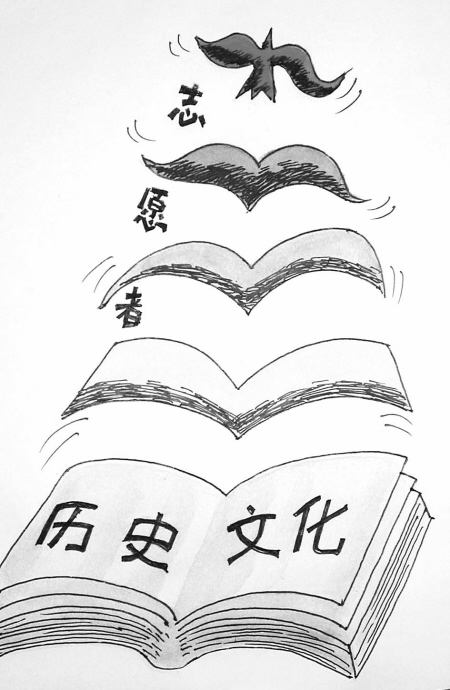 志愿者
历史文化